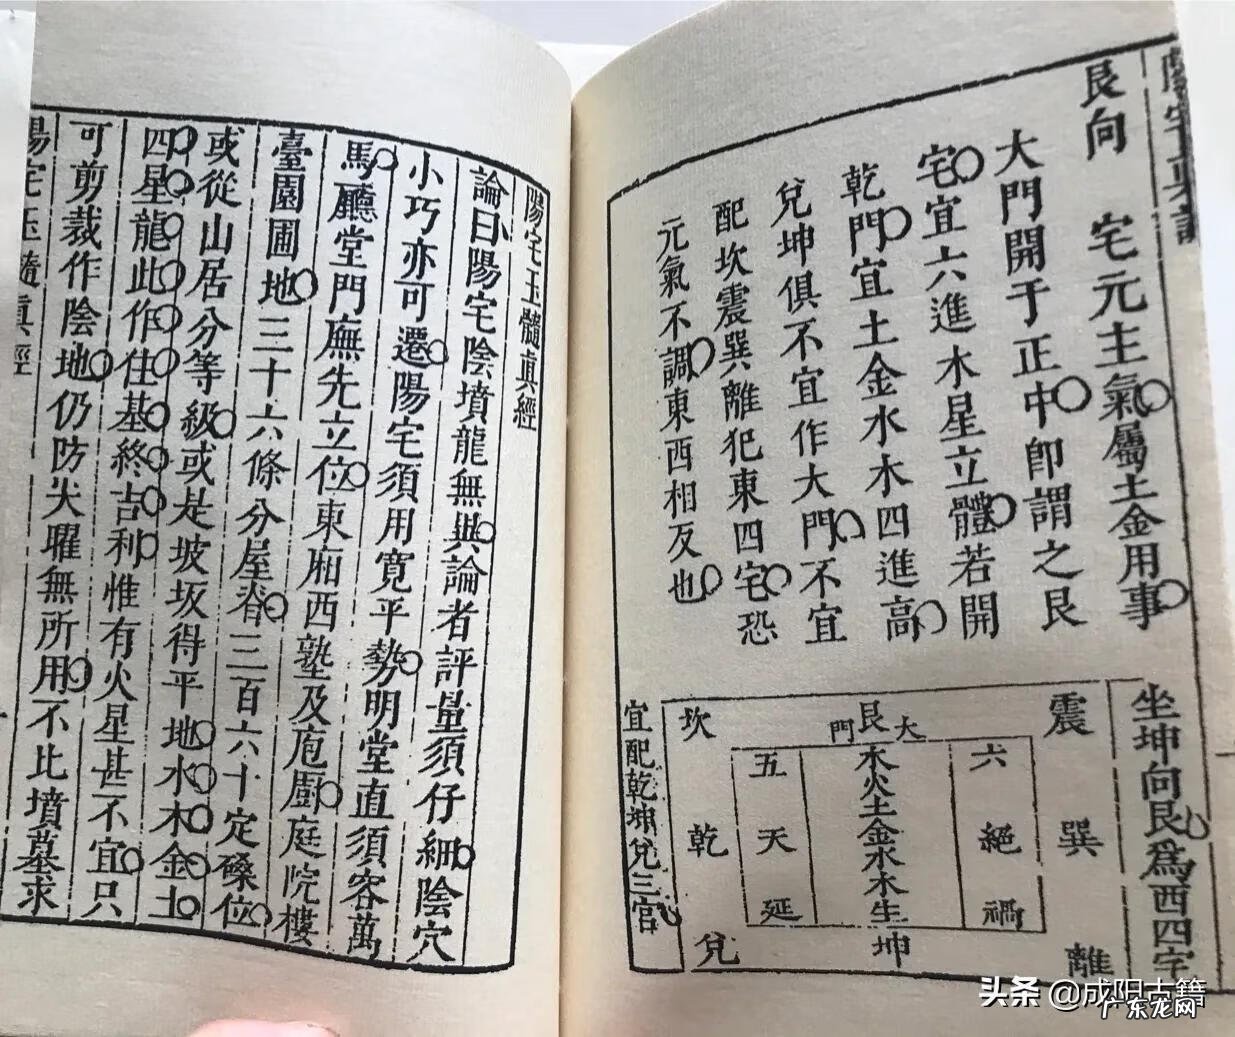 艮向　宅元主氣屬土金用事
大門開于正中卽謂之艮
宅宜六進木星立體若開
乾門宜土金水木四進高
兌坤俱不宜作大門不宜
配坎震巽離犯東四宅恐
元氣不調東西相反也
坐坤向艮爲西四宅
震
巽
離
六
絕
禍
艮
大門
木火土金水木生
坤
五
天
延
坎
乾
兌
宜配乾坤兌三宮
陽宅玉髓眞經
論曰陽宅陰墳龍無異論者評量須仔細陰穴
小巧亦可遷陽宅須用寬平勢明堂直須容萬
馬廳堂門廡先立位東廂西塾及庖廚庭院樓
臺園圃地三十六條分屋脊三百六十定磉位
或從山居分等級或是坡坂得平地水木金土
四星龍此作住基終吉利惟有火星甚不宜只
可剪裁作陰地仍防尖曜無所用不比墳墓求
陽宅玉髓眞經
头条 @成阳古籍
广东龙网